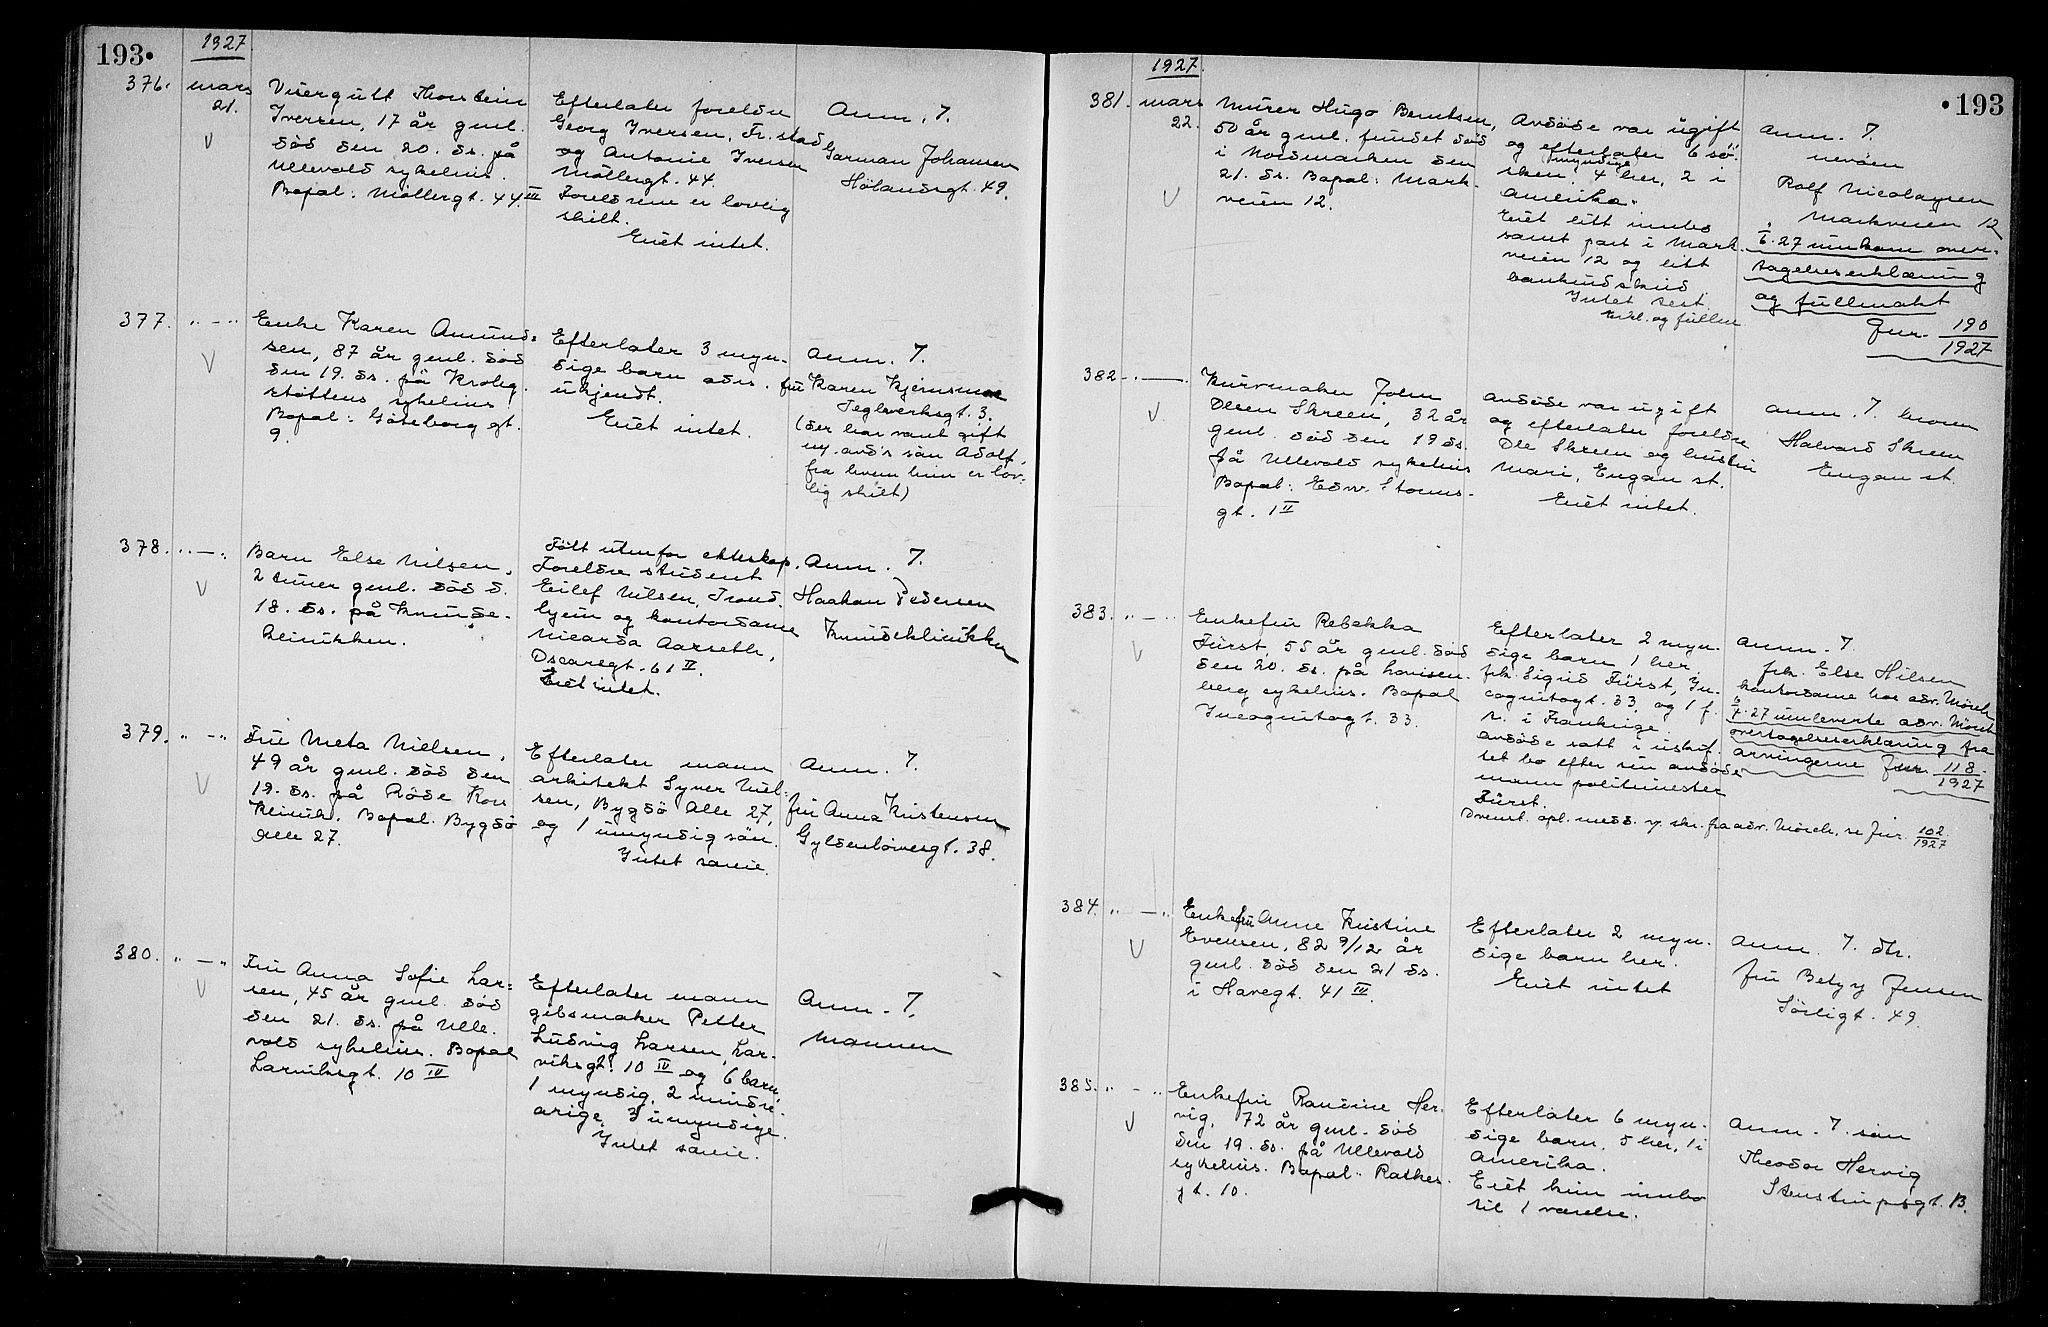 193.
1927.
376. mars 21.
Visergutt Thorstein
Iversen, 17 år gml.
død den 20. ds. på
Ullevold sykehus.
Bopal: Møllergt. 44 III
Efterlater foreldre
Georg Iversen, Fr.stad
og Antonie Iversen
Møllergt. 44.
Foreldrene er lovlig
skilt.
Eiet intet.
Anm. 7.
Garman Johansen
Hølandsgt. 49.
377. " — "
Enke Karen Amund=
sen, 87 år gml. død
den 19. ds. på Krohg
støttens sykehus
Bopal: Göteborg gt.
9.
Efterlater 3 myn-
dige barn adrs.
ukjendt.
Eiet intet.
Anm. 7.
fru Karen Kjernsmoe
Teglverksgt. 3.
(der har vært gift
m. avd's søn Adolf,
fra hvem hun er lov-
lig skilt)
378. " — "
Barn Else Nilsen,
2 timer gml. død d.
18. ds. på Knuds-
klinikken.
Født utenfor ekteskap.
Foreldre student
Eilef Nilsen, Trond-
hjem og kontordame
Nicarda Aarseth,
Oscarsgt. 61 II.
Eiet intet.
Anm. 7.
Haakon Pedersen
Knudsklinikken
379. " — "
Fru Meta Nielsen,
49 år gml. død den
19. ds. på Røde Kors
klinik. Bopal: Bygdø
Alle 27.
Efterlater mann
arkitekt Syver Niel-
sen, Bygdø Alle 27,
og 1 umyndig søn.
Intet særeie.
Anm. 7.
fru Anna Kristensen
Gyldenløvesgt. 38.
380. " — "
Fru Anna Sofie Lar=
sen, 45 år gml. død
den 21. ds. på Ulle-
vold sykehus. Bopal
Larviksgt. 10 IV
Efterlater mann
gibsmaker Petter
Ludvig Larsen, Lar-
viksgt. 10 IV og 6 barn,
1 myndig, 2 mindre-
årige, 3 umyndige.
Intet særeie.
Anm. 7.
Mannen
193
1927.
381. mars 22.
Murer Hugo Berntsen,
50 år gml. fundet død
i Nordmarken den
21. ds. Bopal: Mark-
veien 12.
Avdøde var ugift
og efterlater 6 sø-
sken, myndige, 4 her, 2 i
Amerika.
Eiet litt innbo
samt part i Mark-
veien 12 og litt
bankindskud
Intet test.
erkl. og fullm
Anm. 7.
nevøen
Rolf Nicolaysen
Markveien 12
6. 27 innkom over-
tagelseserklæring
og fullmakt
Jnr. 190/1927
382 " — "
Kurvmaker John
Olsen Skreen, 32 år
gml. død den 19 ds.
på Ullevold sykehus
Bopal: Edv. Storms-
gt. 1 II
Avdøde var ugift
og efterlater foreldre
Ole Skreen og hustru
Mari, Engan st.
Eiet intet.
Anm. 7. broren
Halvard Skreen
Engan st.
383. " — "
Enkefru Rebekka
Fürst, 55 år gml. død
den 20. ds. på Lovisen-
berg sykehus. Bopal
Incognitogt. 33.
Efterlater 2 myn-
dige barn, 1 her,
frk. Sigrid Fürst, In-
cognitogt. 33, og 1 f.
t. i Frankrige.
Avdøde satt i uskif-
tet bo efter sin avdøde
mann politimester
Fürst.
Anm. 7.
frk. Else Nilsen
kontordame hos adv. Mörch
27 innleverte adv. Mörch
overtagelseserklæring fra
arvingerne Jnr. 118/1927
Event. opl. medd. i skr. fra adv. Mörch, se Jnr. 102/1927
384. " — "
Enkefru Anne Kristine
Evensen, 82 9/12 år
gml. død den 21 ds.
i Havegt. 41 IV.
Efterlater 2 myn-
dige barn her.
Eiet intet
Anm. 7. dtr.
fru Betzy Jensen
Sörligt. 49.
385. " — "
Enkefru Randine Her-
vig, 72 år gml. død
den 19. ds. på Ullevold
sykehus. Bopal: Rathkes-
gt. 10.
Efterlater 6 myn-
dige barn, 5 her, 1 i
Amerika.
Eiet kun innbo
til 1 værelse.
Anm. 7. søn
Theodor Hervig
Stenstrupsgt. B.